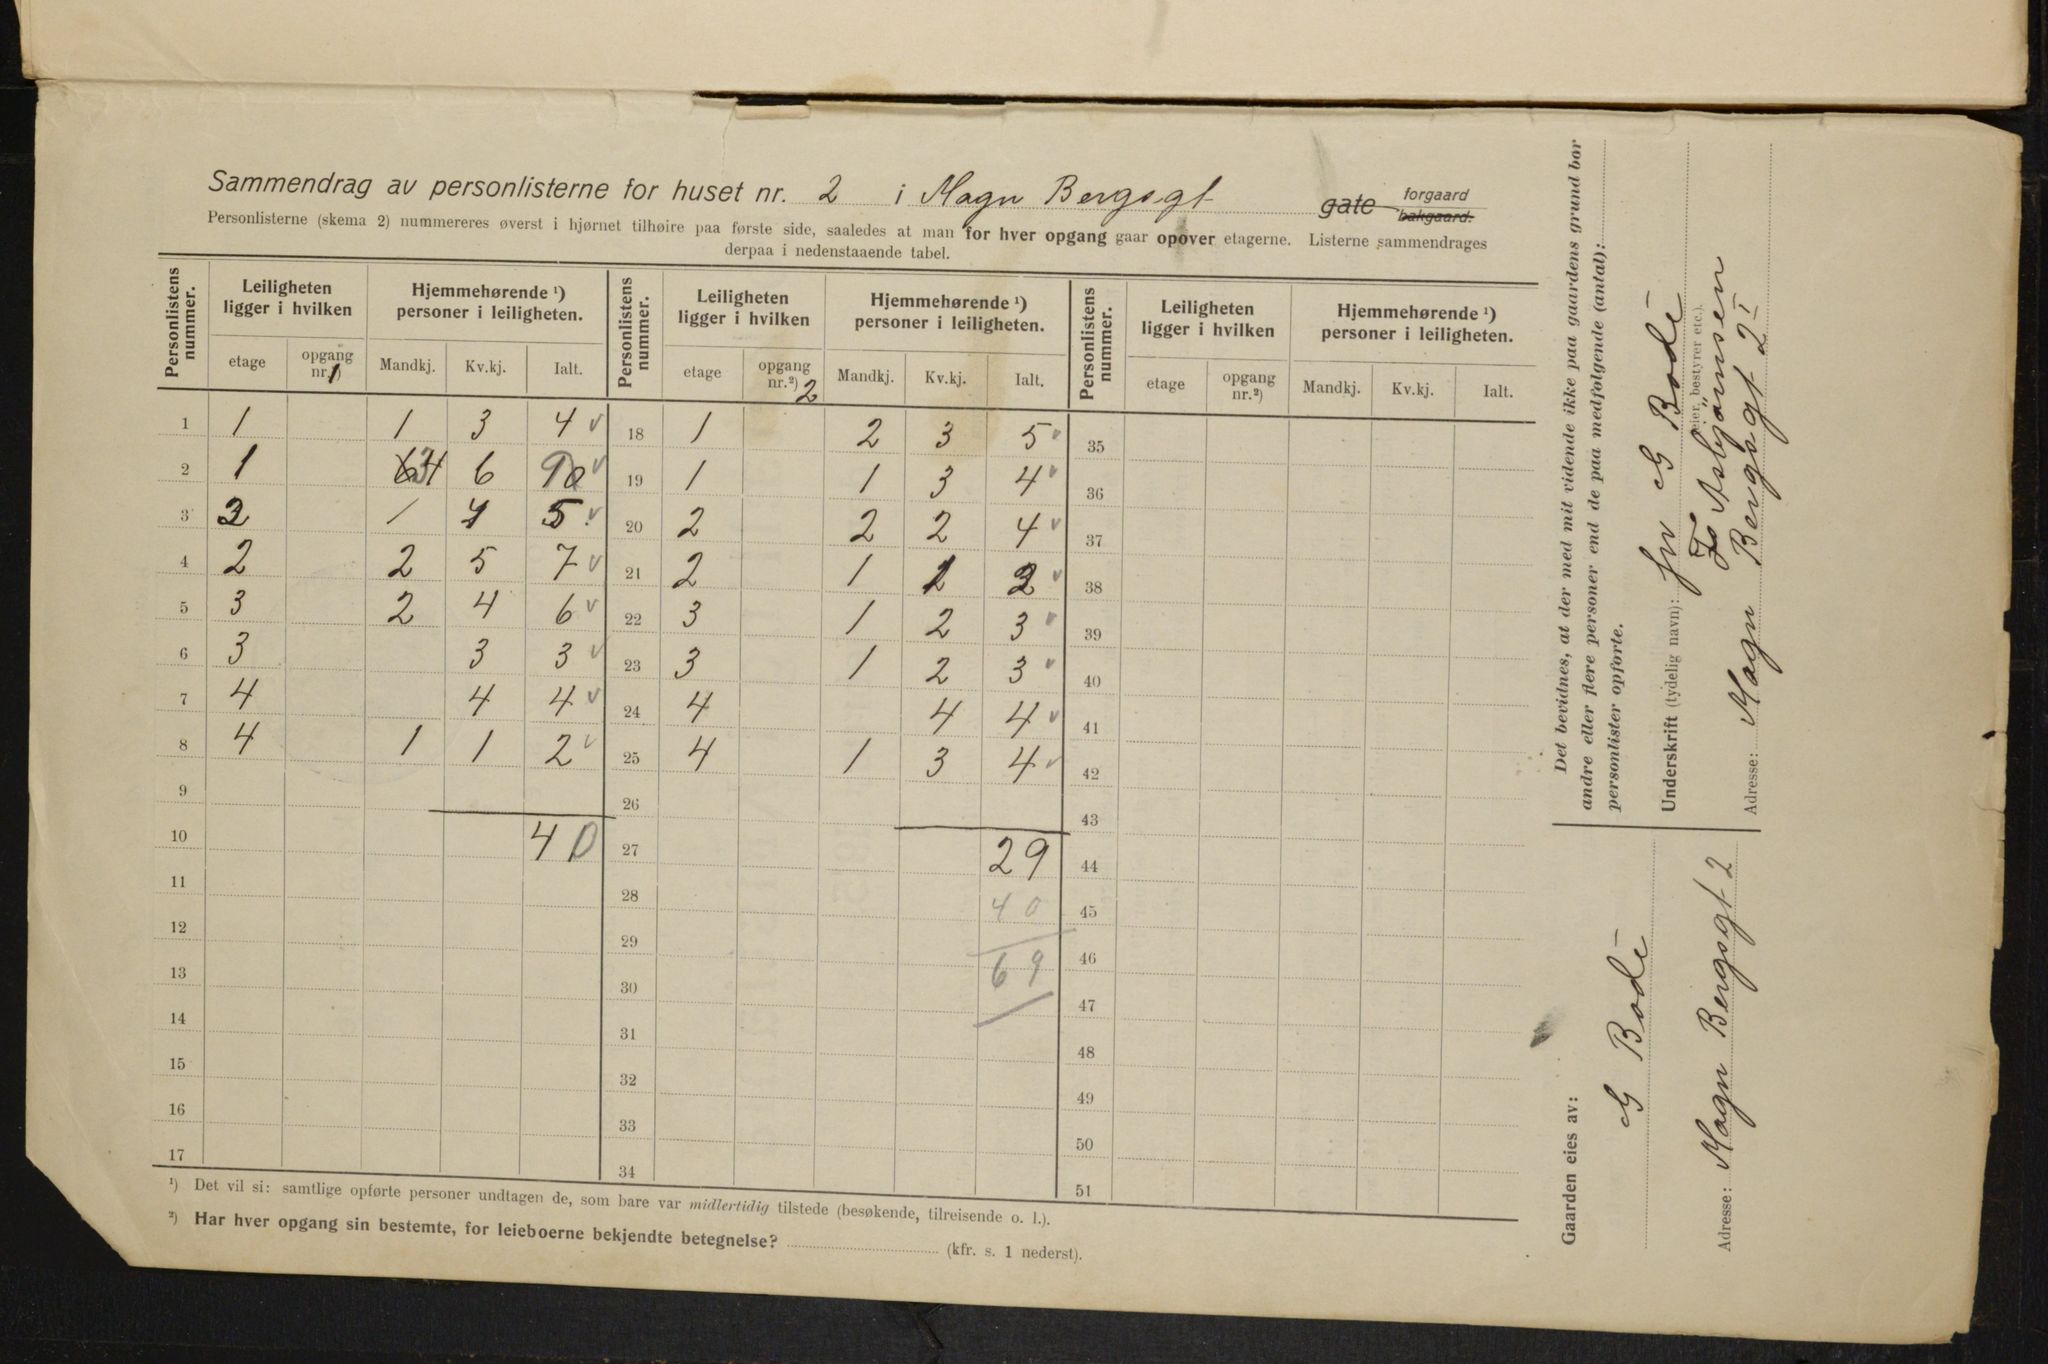 Sammendrag av personlisterne for huset nr. 2 i Magn Bergsgt gate forgaard bakgaard.
Personlisterne (skema 2) nummereres øverst i hjørnet tilhøire paa første side, saaledes at man for hver opgang gaar opover etagerne. Listerne sammendrages
derpaa i nedenstaaende tabel.
Personlistens nummer. Leiligheten ligger i hvilken Hjemmehørende ¹) personer i leiligheten. Personlistens nummer. Leiligheten ligger i hvilken Hjemmehørende ¹) personer i leiligheten. Personlistens nummer. Leiligheten ligger i hvilken Hjemmehørende ¹) personer i leiligheten.
etage opgang nr. 1 Mandkj. Kv.kj. Ialt. etage opgang nr.²) 2 Mandkj. Kv.kj. Ialt. etage opgang nr.²) Mandkj. Kv.kj. Ialt.
1 1 1 3 4 v 18 1 2 3 5 v 35
2 1 3 6 9 v 19 1 1 3 4 v 36
3 2 1 4 5 v 20 2 2 2 4 v 37
4 2 2 5 7 v 21 2 1 1 2 v 38
5 3 2 4 6 v 22 3 1 2 3 v 39
6 3 3 3 v 23 3 1 2 3 v 40
7 4 4 4 v 24 4 4 4 v 41
8 4 1 1 2 v 25 4 1 3 4 v 42
9 26 43
10 40 27 29 44
11 28 40 45
12 29 46
13 30 69 47
14 31 48
15 32 49
16 33 50
17 34 51
¹) Det vil si: samtlige opførte personer undtagen de, som bare var midlertidig tilstede (besøkende, tilreisende o. l.).
²) Har hver opgang sin bestemte, for leieboerne bekjendte betegnelse? (kfr. s. 1 nederst).
Det bevidnes, at der med mit vidende ikke paa gaardens grund bor
andre eller flere personer end de paa medfølgende (antal):
personlister opførte.
Underskrift (tydelig navn): for G Bode
(eier, bestyrer etc.).
Asbjørnsen
Adresse: Magn Bergsgt 2 I
Gaarden eies av:
G Bode
Adresse: Magn Bergsgt 2